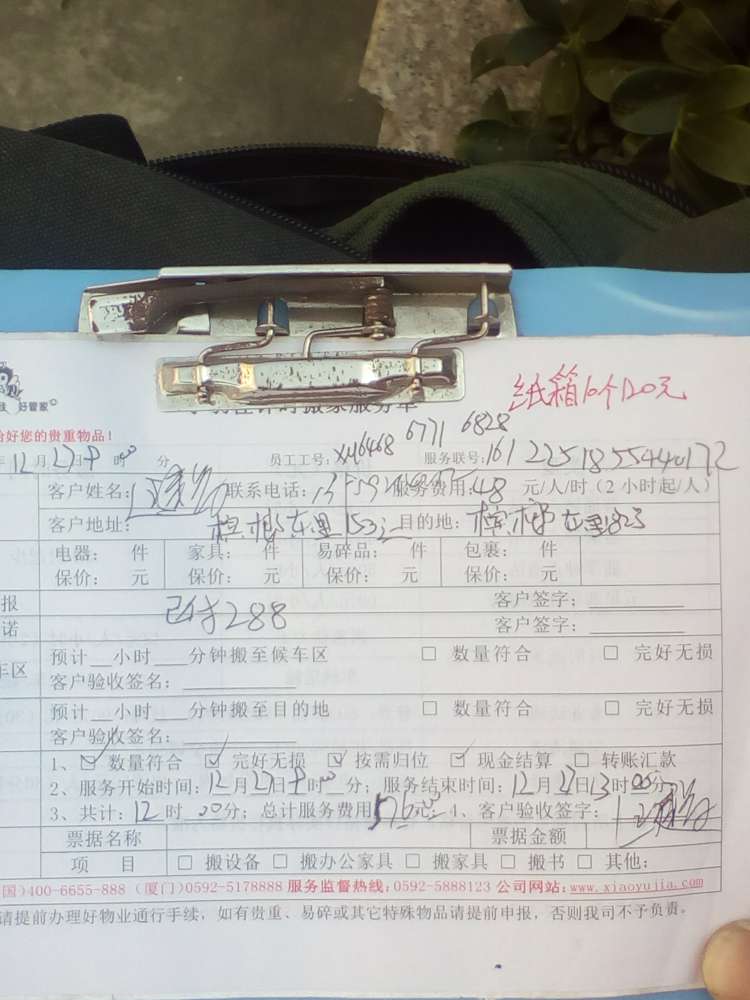 好管家
纸箱10个120元
小羽佳计时搬家服务单
好您的贵重物品！
年12月27日 时00分 员工工号：xy6468 6711 6828 服务联号：161225185544 0172
客户姓名： 联系电话： 服务费用：48 元/人/时（2小时起/人）
客户地址：槟榔东里153 目的地：槟榔东里823
电器： 件 家具： 件 易碎品： 件 包裹： 件
保价： 元 保价： 元 保价： 元 保价： 元
报 已付288 客户签字：
诺 客户签字：
车区 预计__小时___分钟搬至候车区 □ 数量符合 □ 完好无损
客户验收签名：
预计__小时___分钟搬至目的地 □ 数量符合 □ 完好无损
客户验收签名：
1、☑ 数量符合 ☑ 完好无损 ☑ 按需归位 ☑ 现金结算 □ 转账汇款
2、服务开始时间：12月27日 时00分；服务结束时间：12月27日13时00分
3、共计：12时00分；总计服务费用576元；4、客户验收签字：
票据名称 票据金额
项 目 □ 搬设备 □ 搬办公家具 □ 搬家具 □ 搬书 □ 其他：
国）400-6655-888（厦门）0592-5178888 服务监督热线：0592-5888123 公司网站：www.xiaoyujia.com
请提前办理好物业通行手续，如有贵重、易碎或其它特殊物品请提前申报，否则我司不予负责。